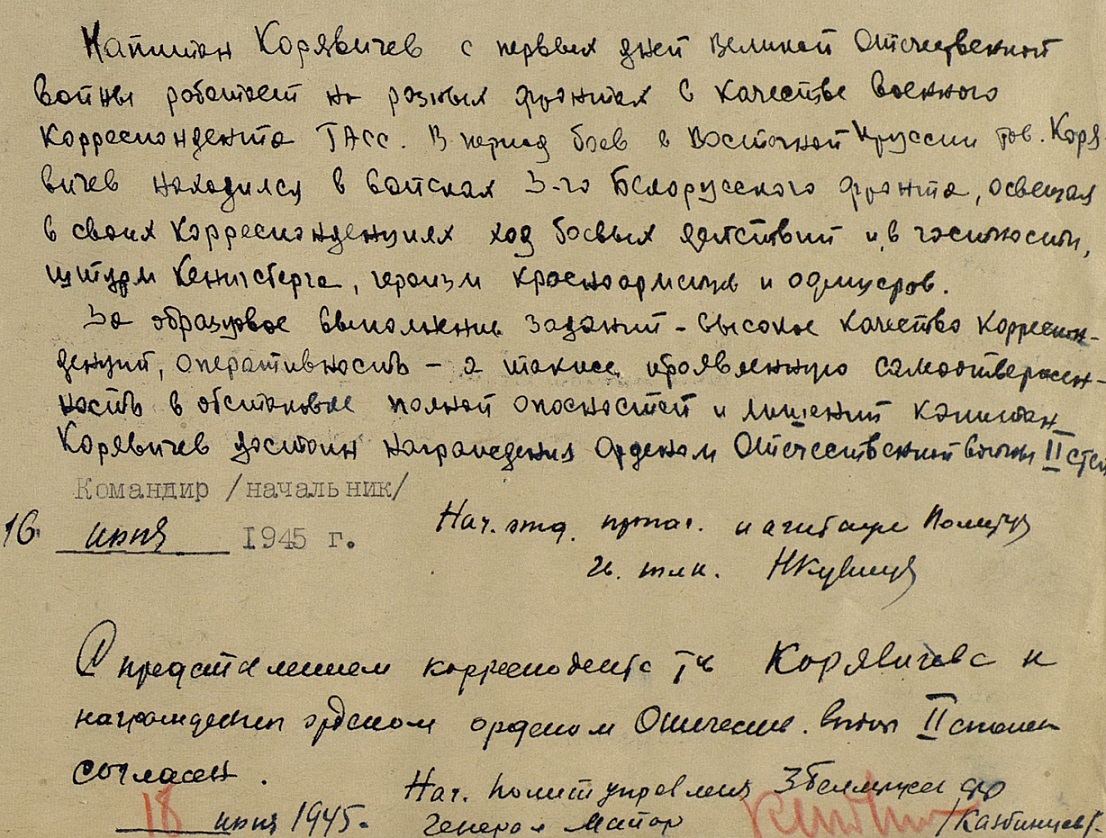 Капитан Корявичев с первых дней Великой Отечественной
войны работает на разных фронтах в качестве военного
корреспондента ТАСС. В период боев в Восточной Пруссии тов. Коря
вичев находился в войсках 3-го Белорусского фронта, освещая
в своих корреспонденциях ход боевых действий и, в частности,
штурм Кенигсберга, героизм красноармейцев и офицеров.
За образцовое выполнение заданий - высокое качество корреспон-
денций, оперативность - а также проявленную самоотвержен-
ность в обстановке полной опасностей и лишений капитан
Корявичев достоин награждения Орденом Отечественной войны II степ
Командир /начальник/
16 июня 1945 г.
Нач. отд. проп. и агитации
Представлением корреспондента Корявичева к
награждению орденом Отечествен. войны II степени
согласен.
Нач. Политуправления 3 Белорусск фр
18 июня 1945.
Генерал Майор /Казбинцев/